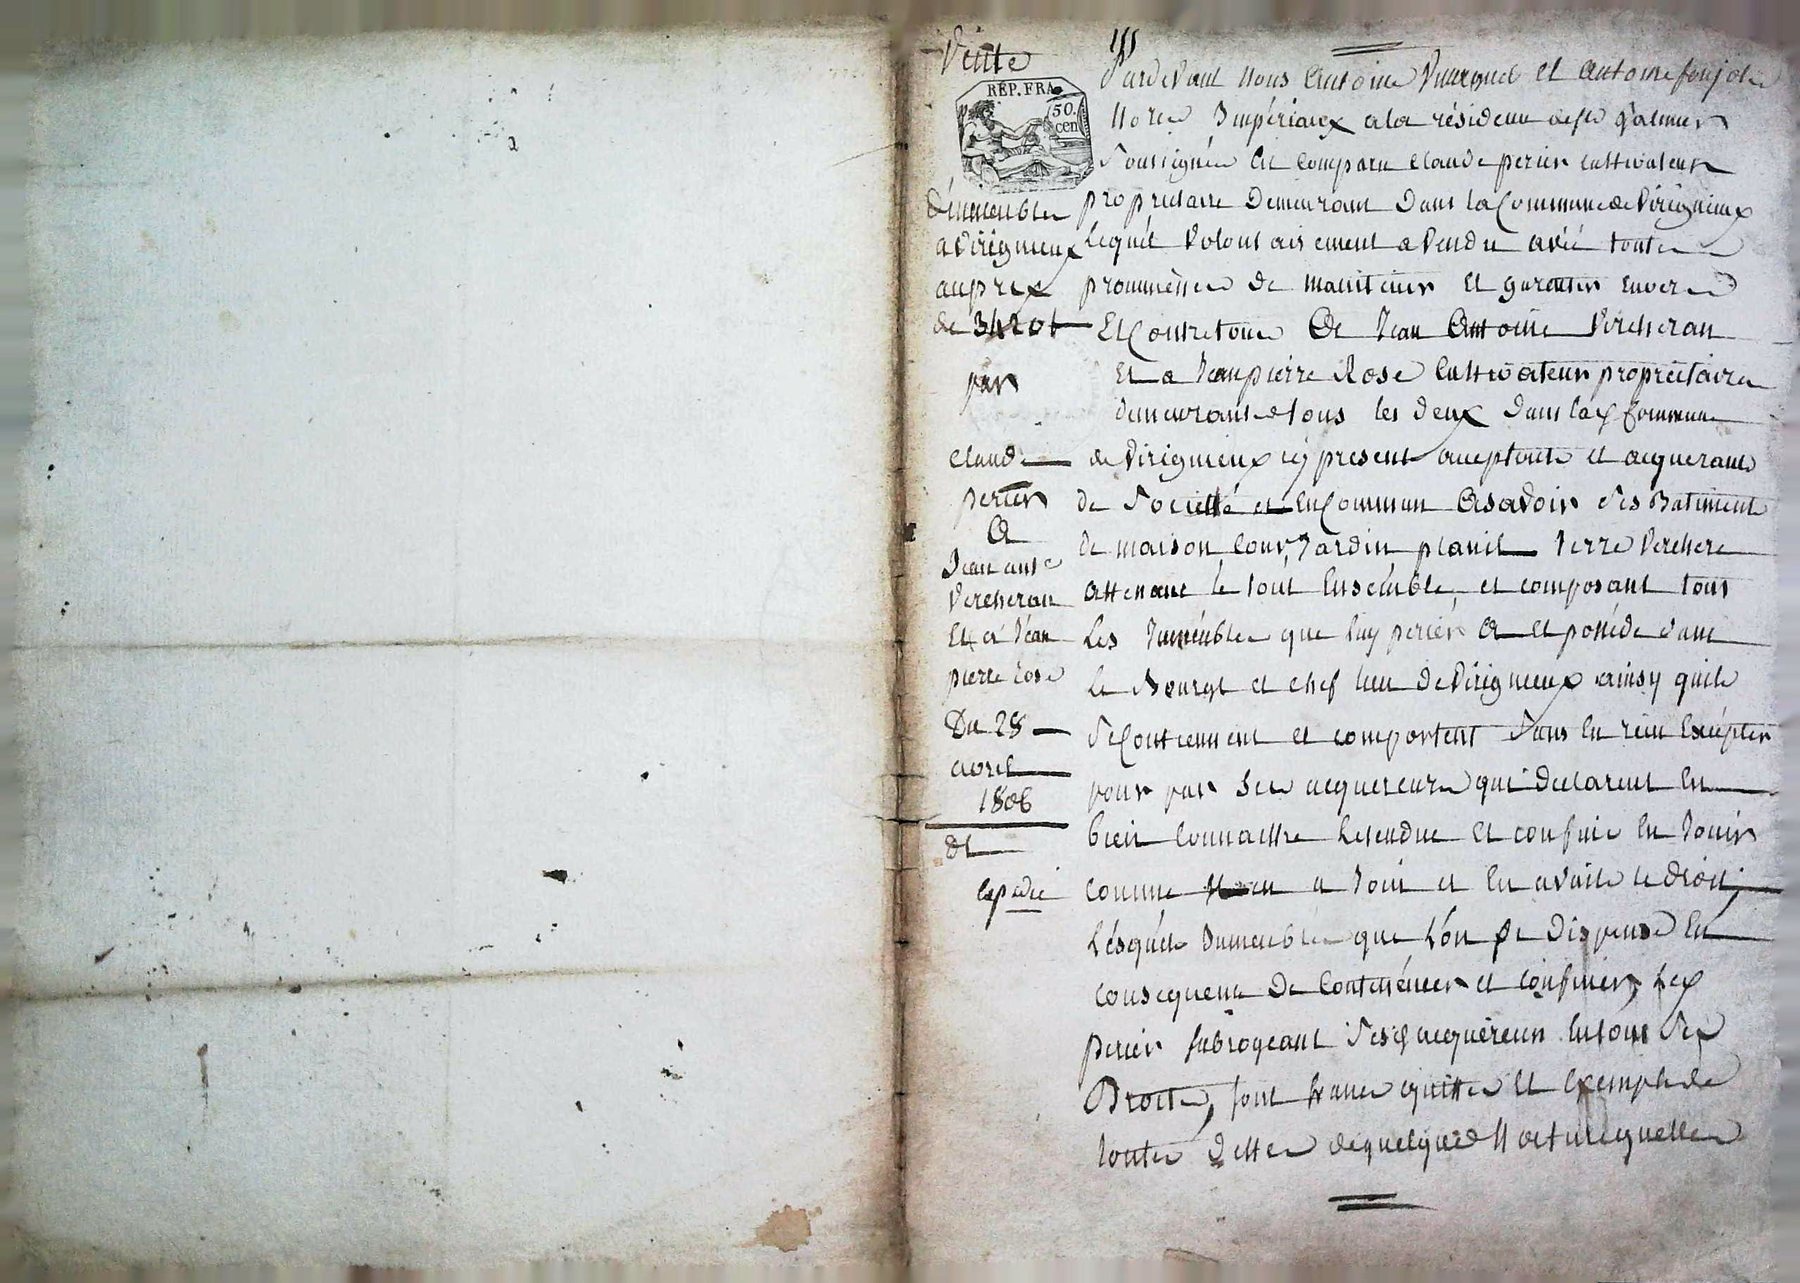 Vente
REP. FRA
50.
cen
d'immeubles
a Virigneux
au prix
de 3420 f
par
Claude
perier
A
Jean ant.e
Vercheran
Et a Jean
pierre Rose
Du 28
avril
1806
expedié
Pardevant Nous Antoine et Antoine
Nores Impériaux a la résidence de St Galmier
Soussignés Est Comparu Claude perier cultivateur
propriétaire Demeurant Dans la Commune de Virigneux
Lequel Volontairement a Vendu avec toutes
prommesses de maintenir Et garantir Envers
Et Contre tous A Jean Antoine Vercheran
Et a Jean pierre Rose Cultivateurs propriétaires
demeurants tous les deux Dans lad Commune
de Virigneux icy presents acceptants et acquerants
de Societté et En Commun Asavoir Ses Batiments
de maison Cour, Jardin planil Terre Verchere
attenant le tout Ensemble, et composant tous
Les Immeubles que luy perier A et possède dans
Le Bourgt et chef lieu de Virigneux ainsy quils
Se Contiennent et comportent Sans En rien Excépter
pour par Ses acquereurs qui declarent En
bien Connaittre Letendue et confins En Jouir
Comme a Joui et En avait le droit,
Lésquels Immeubles que l'on Se Dispense En
Consequence De Contenéncer et Confiner, Led
perier Subrogeant Sesd acquéreurs En tous Ses
Droits, sont francs quittes Et Exempts de
toutes Dettes de quelques Natures quelles